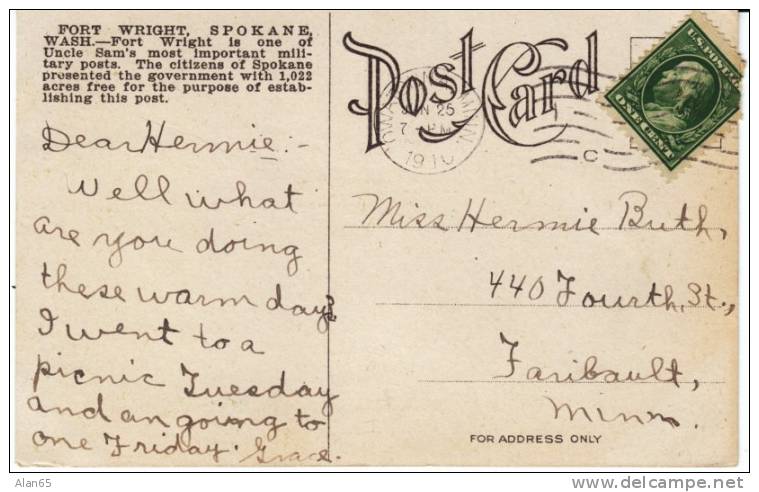 FORT WRIGHT, SPOKANE,
WASH.—Fort Wright is one of
Uncle Sam's most important mili-
tary posts. The citizens of Spokane
presented the government with 1,022
acres free for the purpose of estab-
lishing this post.
Dear Hermie:-
Well what
are you doing
these warm days?
I went to a
picnic Tuesday
and an going to
one Friday. Grace.
Post Card
25
7 PM
1910
C
U.S. POSTAGE
ONE CENT
Miss Hermie Buth,
440 Fourth, St.,
Faribault,
Minn.
FOR ADDRESS ONLY
Alan65
delcampe.net